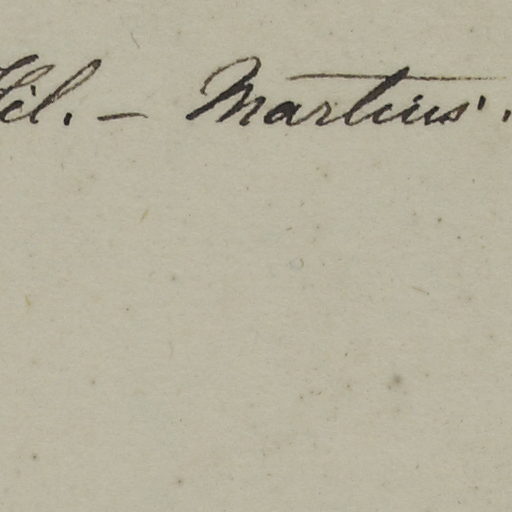 Hil. — Martius.